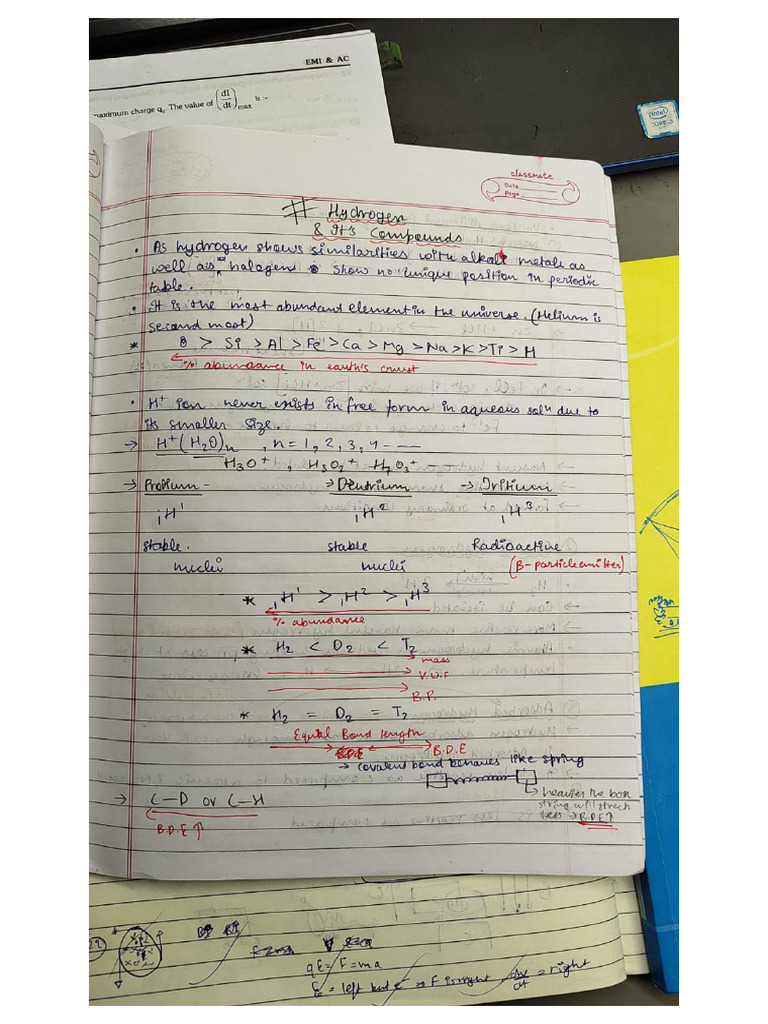 EMI & AC
maximum charge q₀. The value of (dI/dt)max is :-
intel
CORE i3
classmate
Date
Page
# Hydrogen
& It's Compounds
• As hydrogen shows similarities with alkali metals as
well as halogens show no unique position in periodic
table.
• It is the most abundant element in the universe. (Helium is
second most)
* O > Si > Al > Fe > Ca > Mg > Na > K > Ti > H
% abundance in earth's crust
• H⁺ ion never exists in free form in aqueous solⁿ due to
its smaller size.
→ H⁺(H₂O)n , n = 1, 2, 3, 4 ----
H₃O⁺ , H₅O₂⁺ H₇O₃⁺
→ Protium - → Deutrium → Tritium
₁H¹ ₁H² ₁H³
stable stable Radioactive
nuclei nuclei (β-particle emitter)
* ₁H¹ > ₁H² > ₁H³
% abundance
* H₂ < D₂ < T₂
mass
B.P.
* H₂ = D₂ = T₂
Equal Bond length
B.D.E
→ covalent bond behaves like spring
→ C–D or C–H
B.D.E ↑
→ heavier the box
string will strech
less → B.D.E ↑
qE = F = ma
E = left but e⁻ → F is right = right